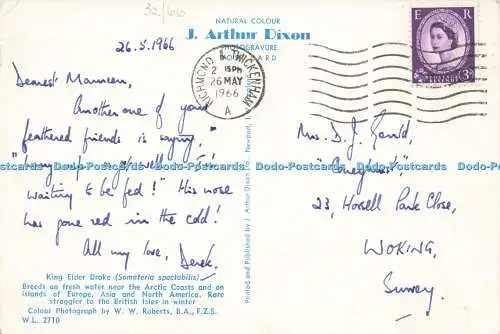 32/66
NATURAL COLOUR
J. Arthur Dixon
PHOTOGRAVURE
26.5.1966
Dearest Maureen,
Another one of your
feathered friends is saying,
waiting to be fed!" His nose
has gone red in the cold!
All my love, Derek.
King Eider Drake (Somateria spectabilis)
Breeds on fresh water near the Arctic Coasts and on
islands of Europe, Asia and North America. Rare
straggler to the British Isles in winter
Colour Photograph by W. W. Roberts, B.A., F.Z.S.
W.L. 2710
Printed and Published by J. Arthur Dixon Newport,
RICHMOND & TWICKENHAM
2 15 PM
26 MAY
1966
A
E R
3D
Mrs. D. J. Gould,
23, Horsell Park Close,
WOKING,
Surrey.
Dodo-Postcards Dodo-Postcards Dodo-Postcards Dodo-Postcards Dodo-Postcards